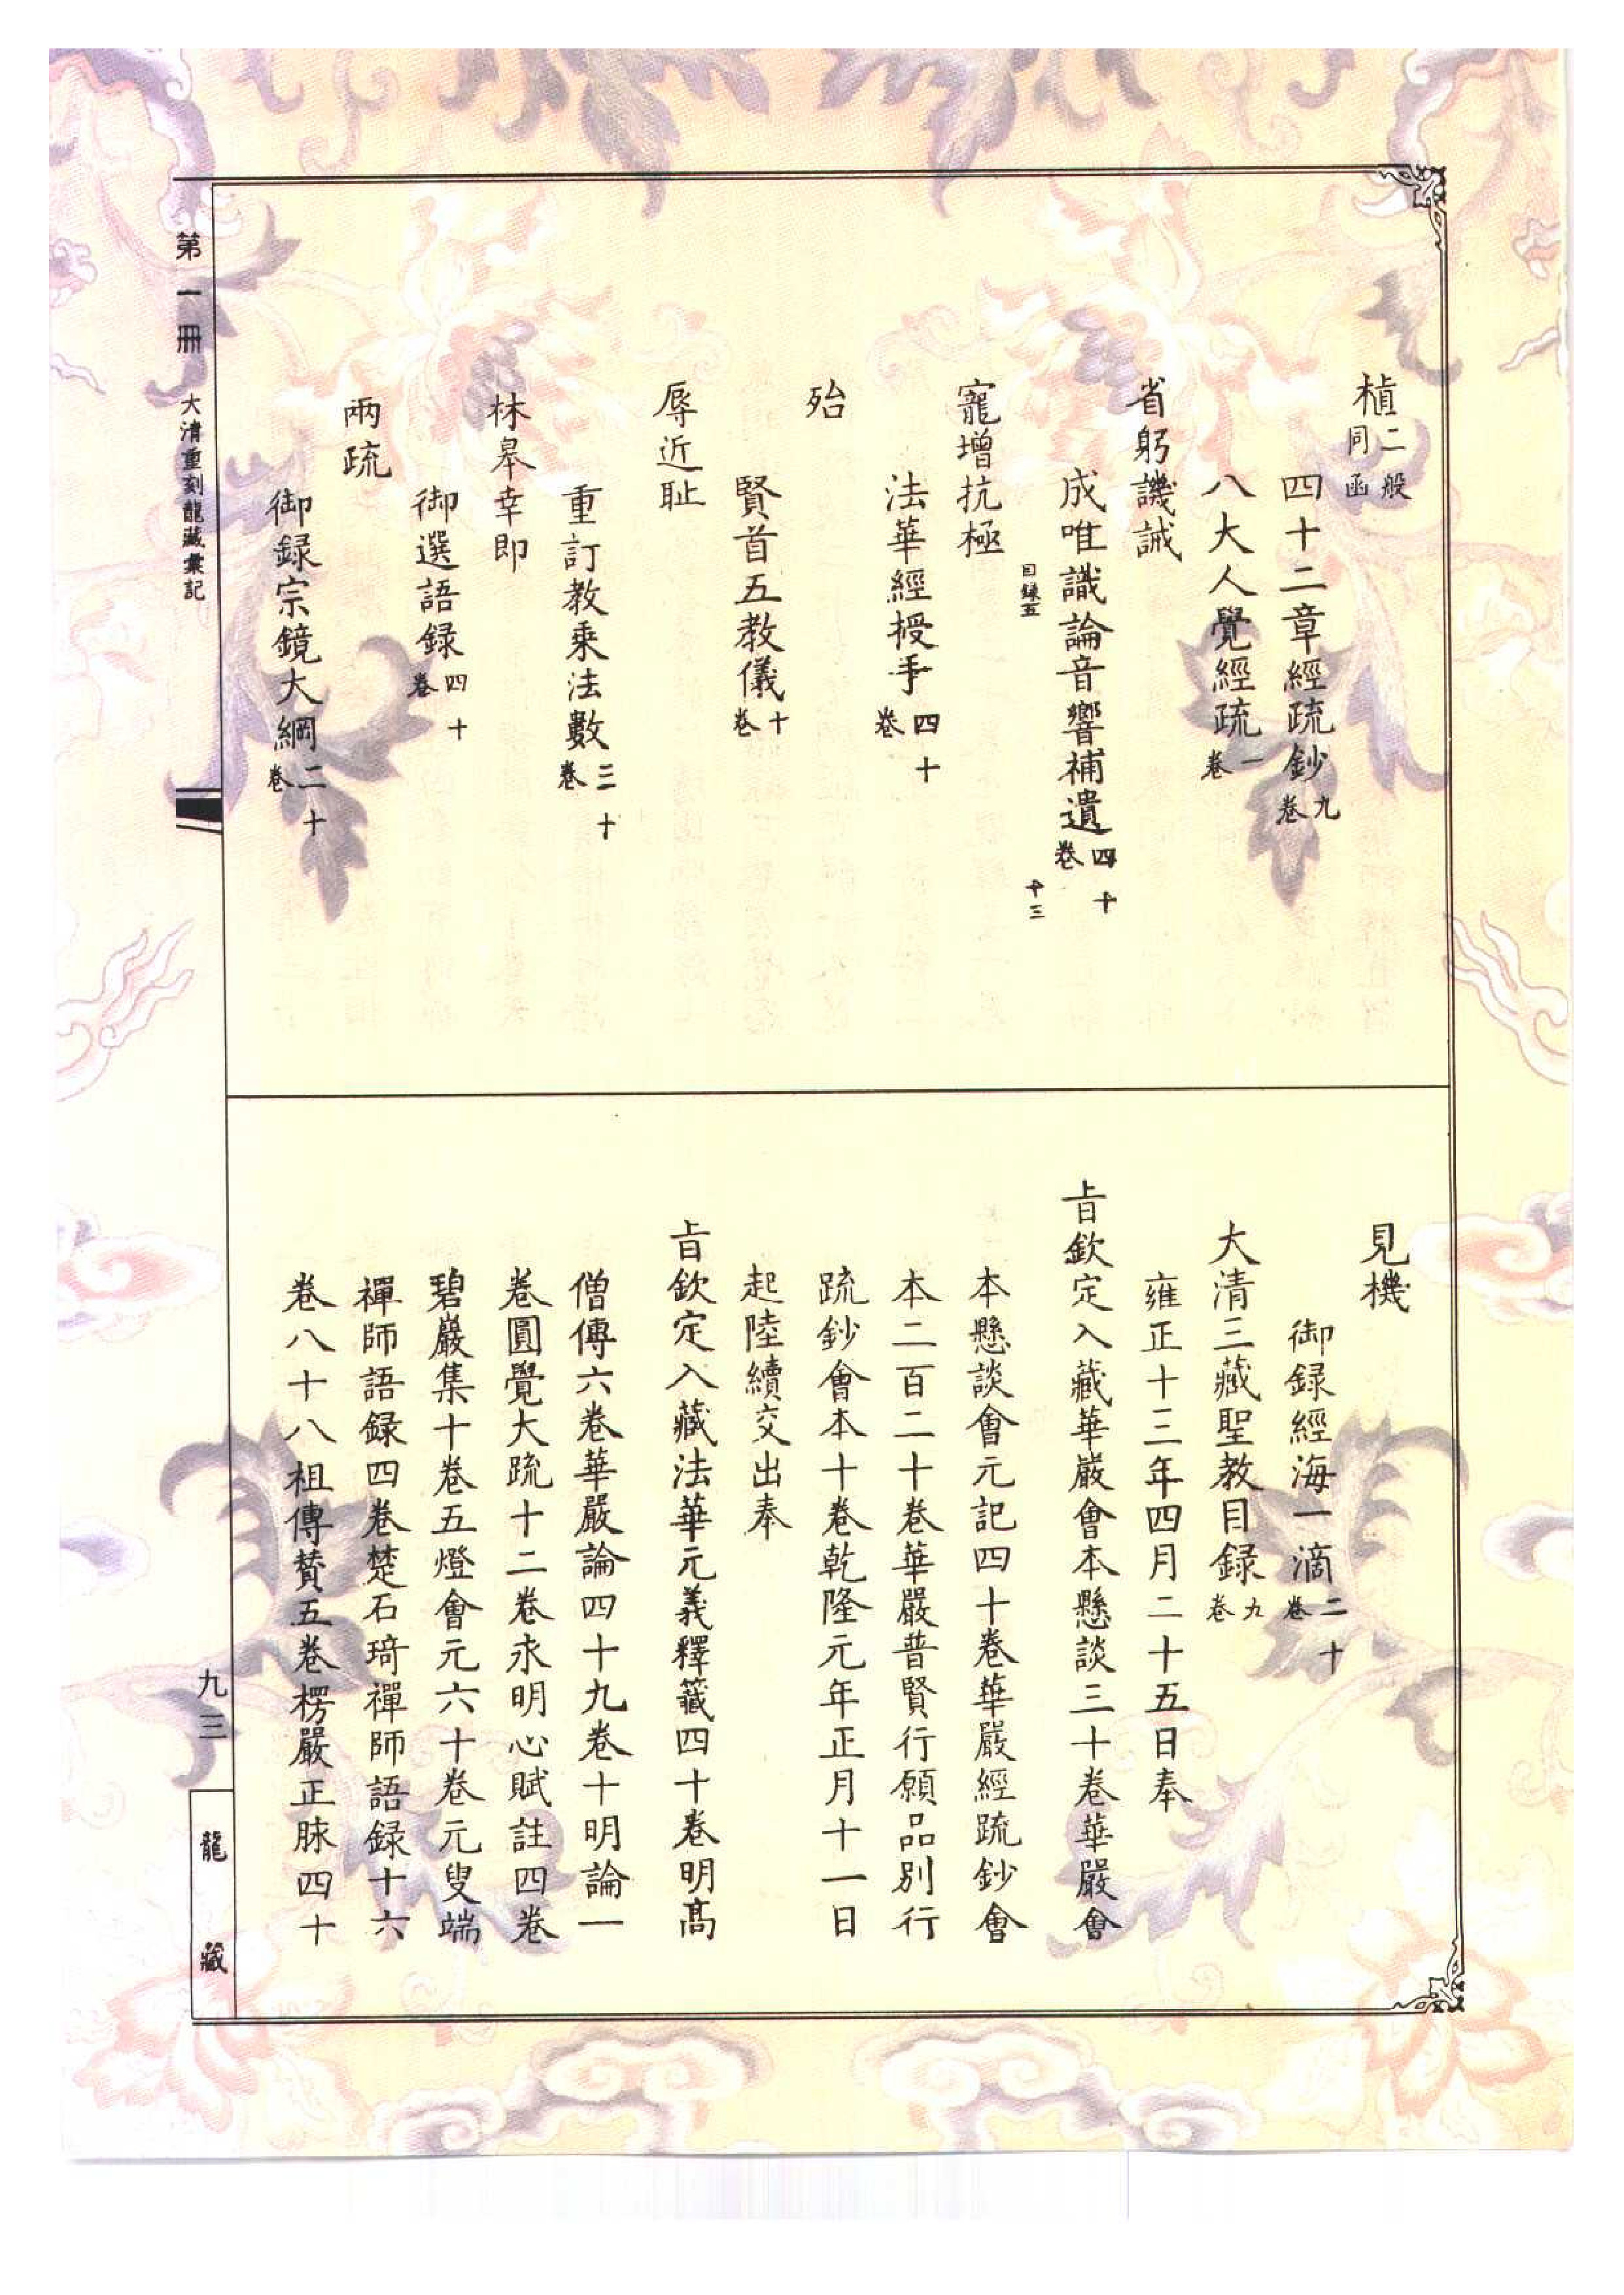 植二般同函
四十二章經疏鈔九卷
八大人覺經疏一卷
省躬譏誡
成唯識論音響補遺四十卷
目録五
十三
寵增抗極
法華經授手四十卷
殆
賢首五教儀十卷
辱近耻
重訂教乘法數三十卷
林皋幸即
御選語録四十卷
兩疏
御録宗鏡大綱二十卷
見機
御録經海一滴二十卷
大清三藏聖教目録九卷
雍正十三年四月二十五日奉
旨欽定入藏華嚴會本懸談三十卷華嚴會
本懸談會元記四十卷華嚴經疏鈔會
本二百二十卷華嚴普賢行願品別行
疏鈔會本十卷乾隆元年正月十一日
起陸續交出奉
旨欽定入藏法華元義釋籤四十卷明高
僧傳六卷華嚴論四十九卷十明論一
卷圓覺大疏十二卷永明心賦註四卷
碧巖集十卷五燈會元六十卷元叟端
禪師語録四卷楚石琦禪師語録十六
卷八十八祖傳贊五卷楞嚴正脉四十
第一冊
大清重刻龍藏彙記
九三
龍藏